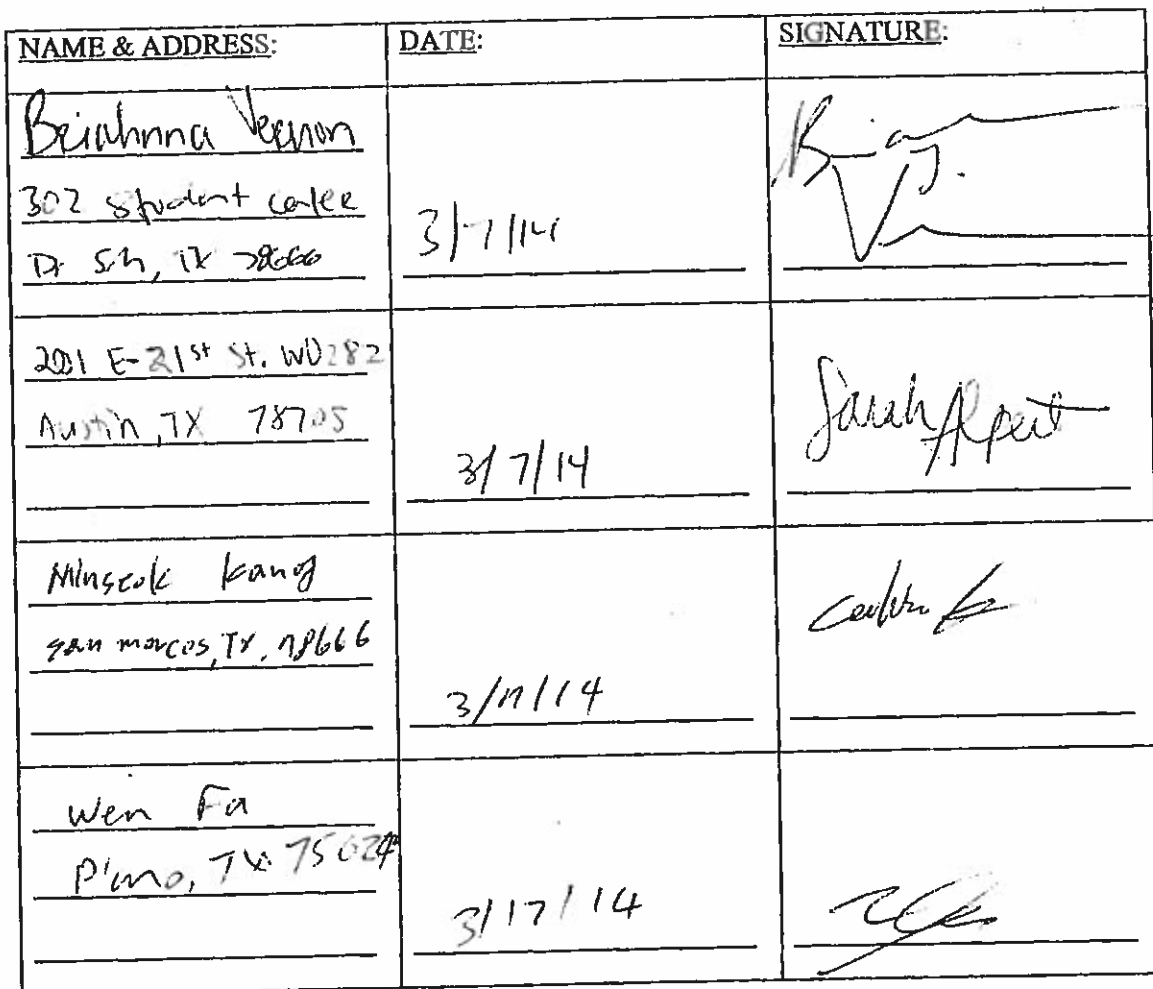 NAME & ADDRESS: DATE: SIGNATURE:
Briahnna Vernon
302 Student center
Dr S.M, TX 78666
3/7/14
201 E. 21st St. W0282
Austin, TX 78705
3/7/14
Sarah Alpert
Minseok Kang
san marcos, TX, 78666
3/17/14
Wen Fa
Plano, TX 75024
3/17/14